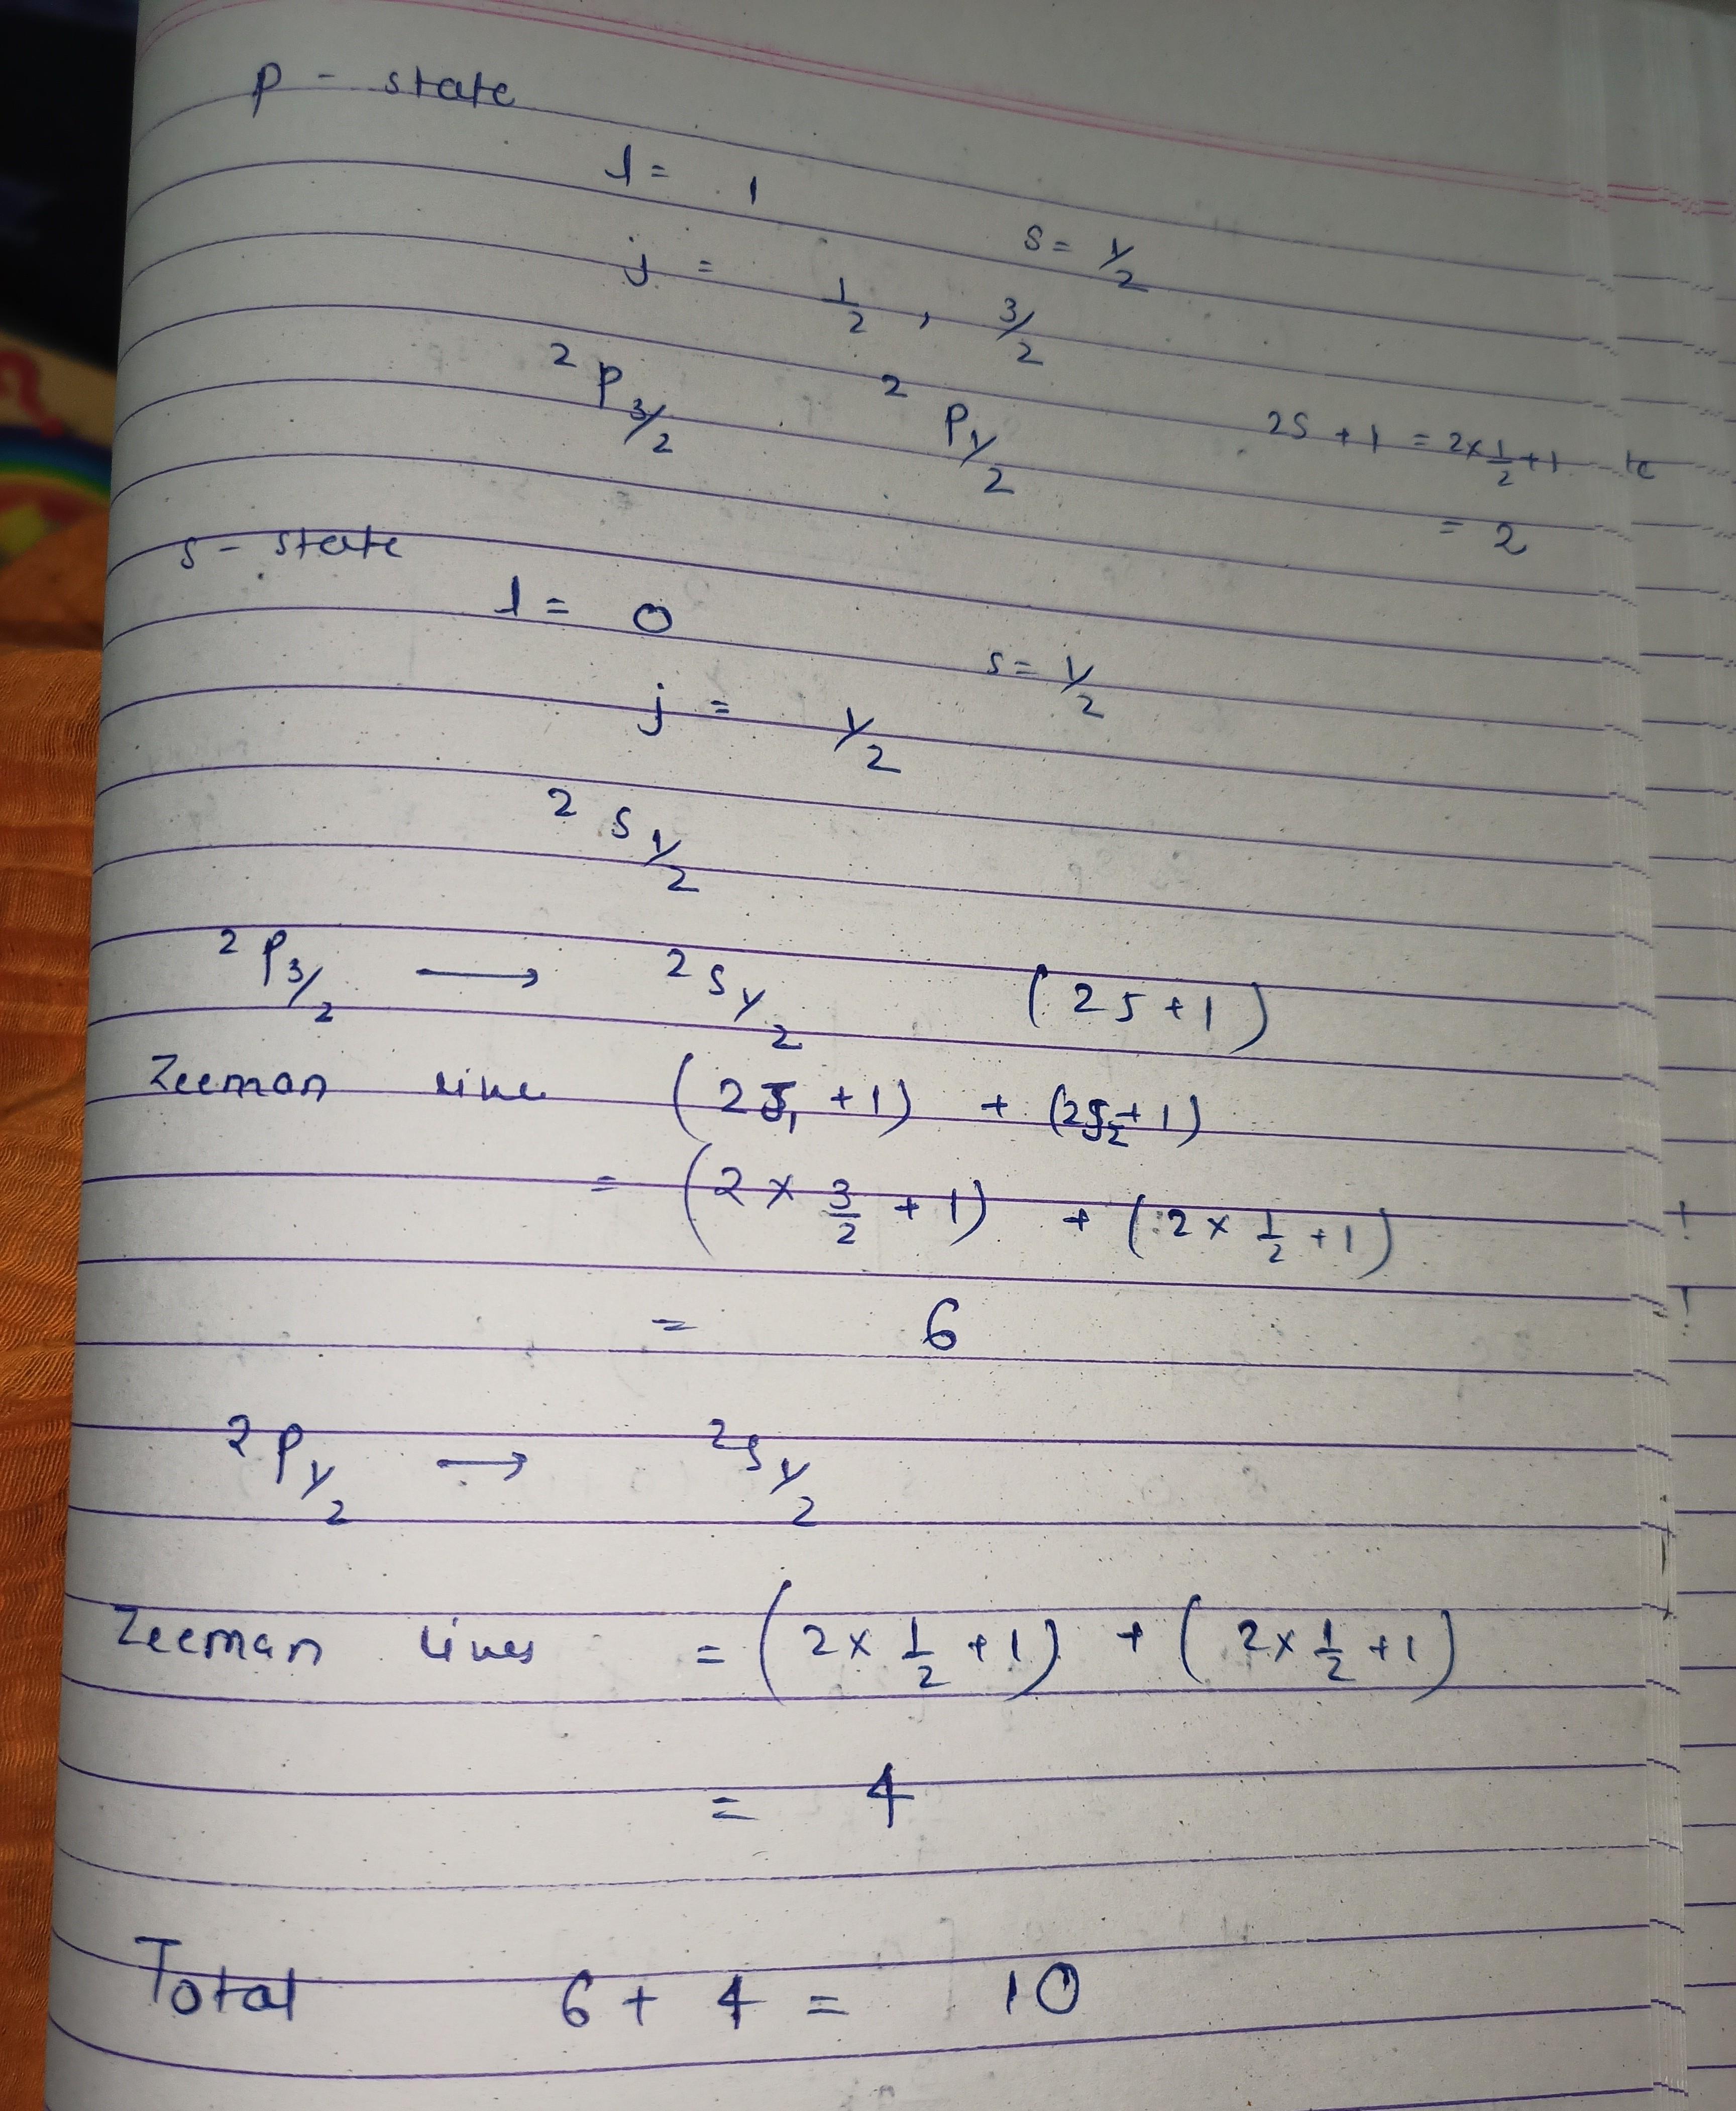 p - state
l = 1
s = 1/2
j = 1/2 , 3/2
²P3/2 ²P1/2 2S + 1 = 2×1/2+1
= 2
s - state
l = 0
s = 1/2
j = 1/2
²S1/2
²P3/2 → ²S1/2 (2S+1)
Zeeman line (2J₁ + 1) + (2J₂+1)
= (2 × 3/2 + 1) + (2 × 1/2 + 1)
= 6
²P1/2 → ²S1/2
Zeeman lines = (2× 1/2 +1) + (2× 1/2 +1)
= 4
Total 6 + 4 = 10